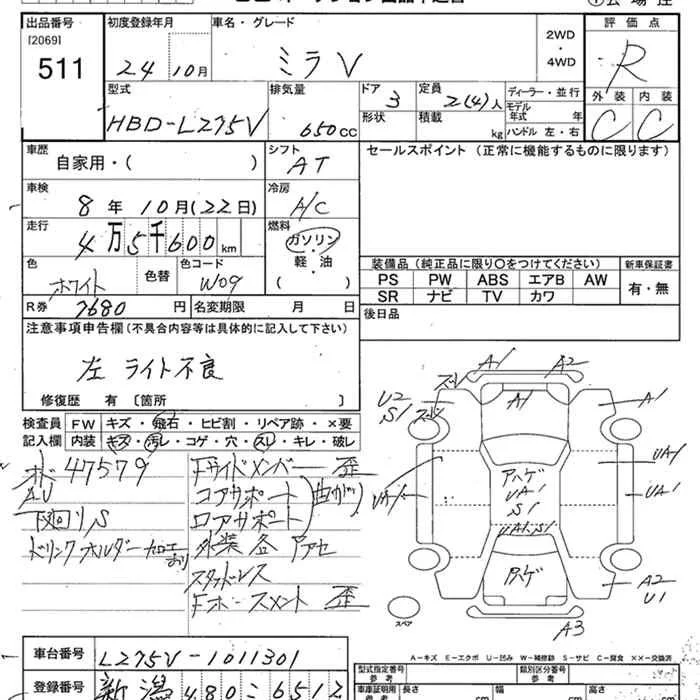 出品番号 初度登録年月 車名・グレード 評価点
[2069]
511 24 10月 ミラV 2WD・4WD R
型式 排気量 ドア 定員 ディーラー・並行 外装 内装
HBD-L275V 650CC 3 2(4)人 モデル年式 年 C C
形状 積載 kg ハンドル 左・右
車歴 シフト セールスポイント (正常に機能するものに限ります)
自家用・( ) AT
車検 冷房
8年 10月(22日) A/C
走行 燃料
4万5千600km ガソリン・軽・油
色 色替 色コード ( )
ホワイト W09
装備品 (純正品に限り〇をつけてください) 新車保証書
PS PW ABS エアB AW 有・無
SR ナビ TV カワ
R券 7680円 名変期限 月 日 後日品
注意事項申告欄 (不具合内容等は具体的に記入して下さい)
左 ライト不良
修復歴 有 〔箇所 〕
検査員記入欄 FW キズ・飛石・ヒビ割・リペア跡・×要
内装 キズ・汚レ・コゲ・穴・スレ・キレ・破レ
47579
AU
下回りS
ドリンクホルダー
Fサイドメンバー 歪
コアサポート 曲がり
ロアサポート
外装各
スタッドレス
A1 A2
U2 S1 A1 A1
UA1 UA1 UA1
アハゲ
UA1
S1
UA1,S1
アハゲ
A2
U1
A3
スペア
A-キズ E-エクボ U-凹み W-補修跡 S-サビ C-腐食 ××-交換済
車台番号 L275V-1011301
登録番号 新潟 480
型式指定番号 参考 類別区分番号 参考
車庫証明用 参考 長さ cm 幅 cm